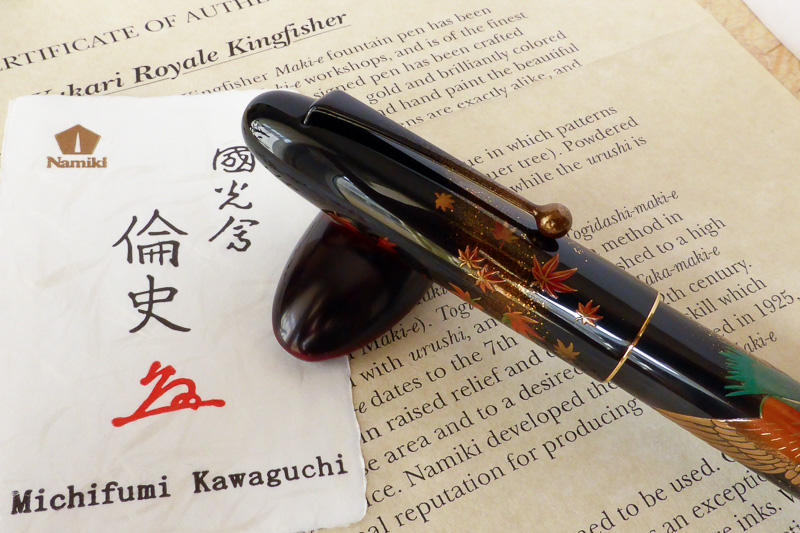 CERTIFICATE OF AUTHE
Yukari Royale Kingfisher
Kingfisher Maki-e fountain pen has been
workshops, and is of the finest
signed pen has been crafted
gold and brilliantly colored
nd hand paint the beautiful
ens are exactly alike, and
ue in which patterns
quer tree). Powdered
while the urushi is
Togidashi-maki-e
method in
shed to a high
Taka-maki-e
th century.
-kill which
Maki-e). Togi
ed in 1925,
with urushi, an
ki-e
-e dates to the 7th
in raised relief and c
e area and to a desire
ce. Namiki developed the
nal reputation for producing
ned to be used.
s an exception
e inks. W
Namiki
國光會
倫史
Michifumi Kawaguchi